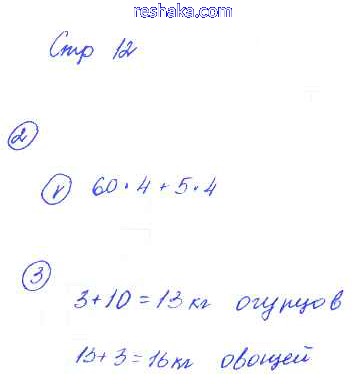 reshaka.com
Стр 12
2
V 60 · 4 + 5 · 4
3
3 + 10 = 13 кг огурцов
13 + 3 = 16 кг овощей